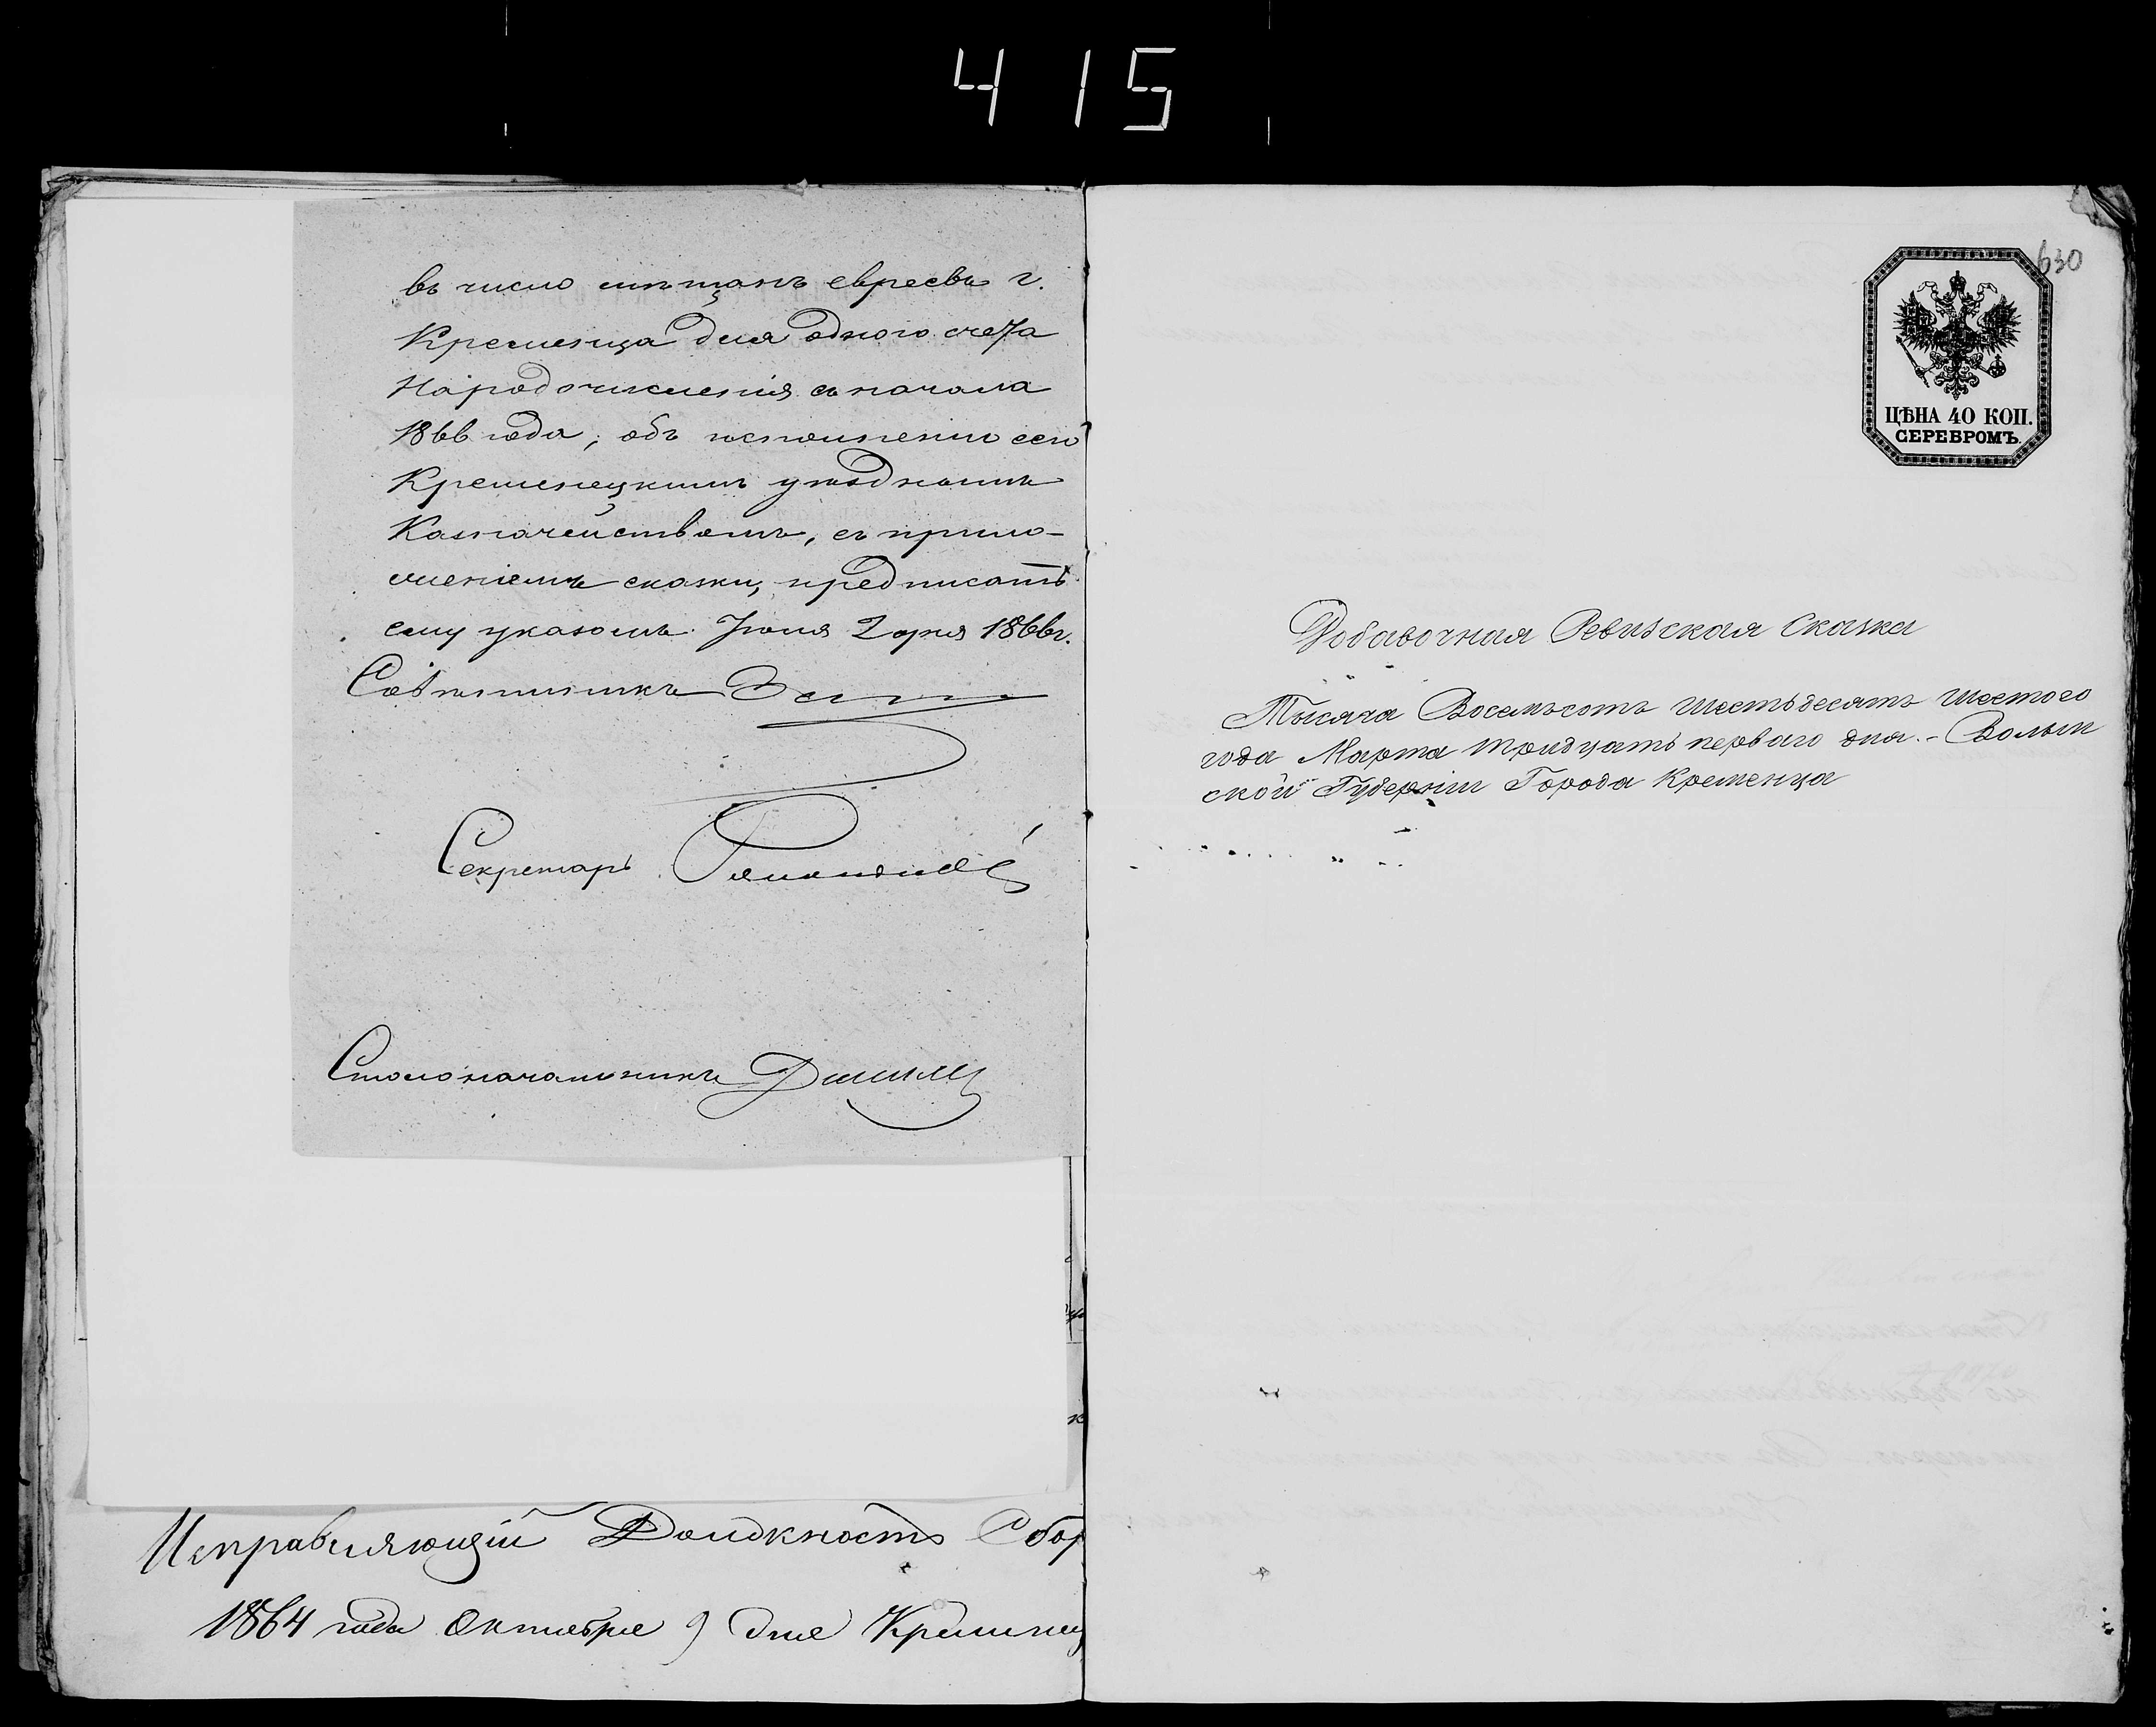 415
въ число мѣщанъ евреевъ г.
Кременца для одного счета
Народочисленія съ начала
1866 года, объ исполненіи сего
Кременецкимъ уѣзднымъ
Казначействомъ, съ прило-
женіемъ сказки, предписать
ему указомъ. Іюня 2 дня 1866 г.
Совѣтникъ
Секретарь
Столоначальникъ
Исправляющій Должность Сбор
1864 года Октября 9 дня Кременец
630
ЦѢНА 40 КОП.
СЕРЕБРОМЪ.
Добавочная Ревизская Сказка
Тысяча Восемьсотъ шестьдесятъ шестого
года Марта тридцать перваго дня. - Волын
ской Губерніи Города Кременца